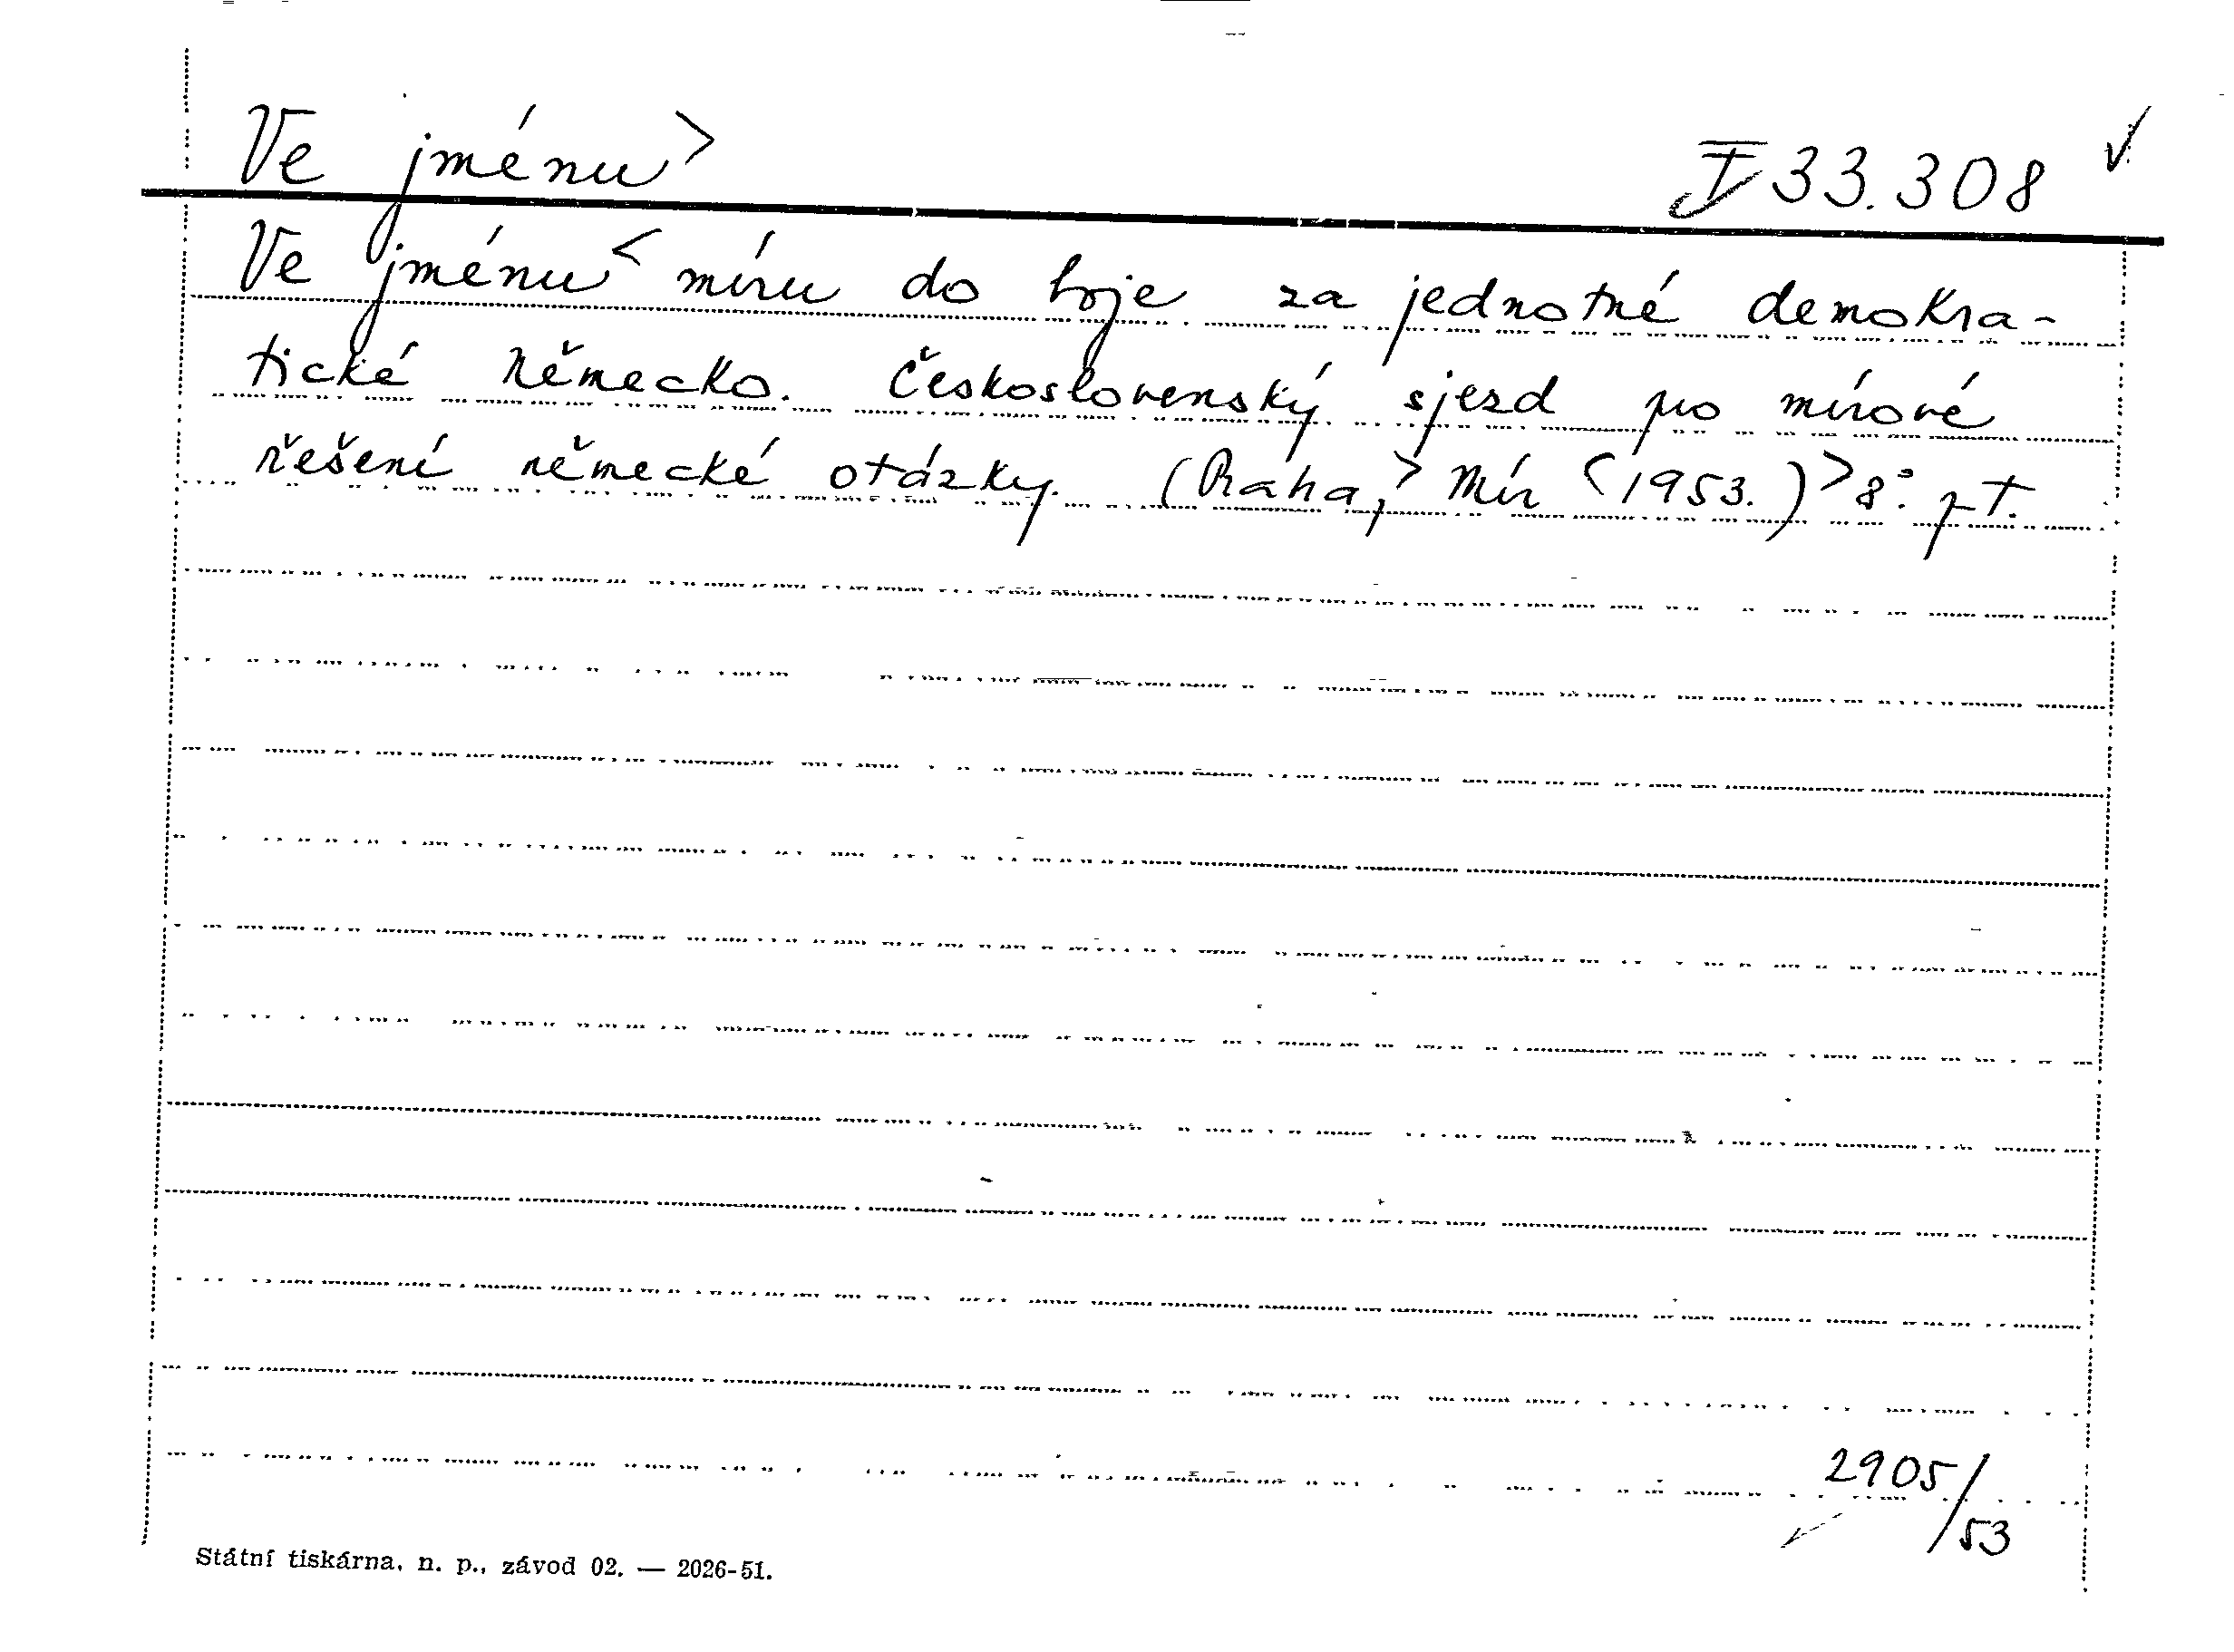 Ve jménu> I 33.308 √
Ve jménu< míru do boje za jednotné demokra-
tické Německo. Československý sjezd pro mírové
řešení německé otázky. (Praha,> Mír <1953.)> 8°. pt.
2905/53
Státní tiskárna, n. p., závod 02. — 2026-51.